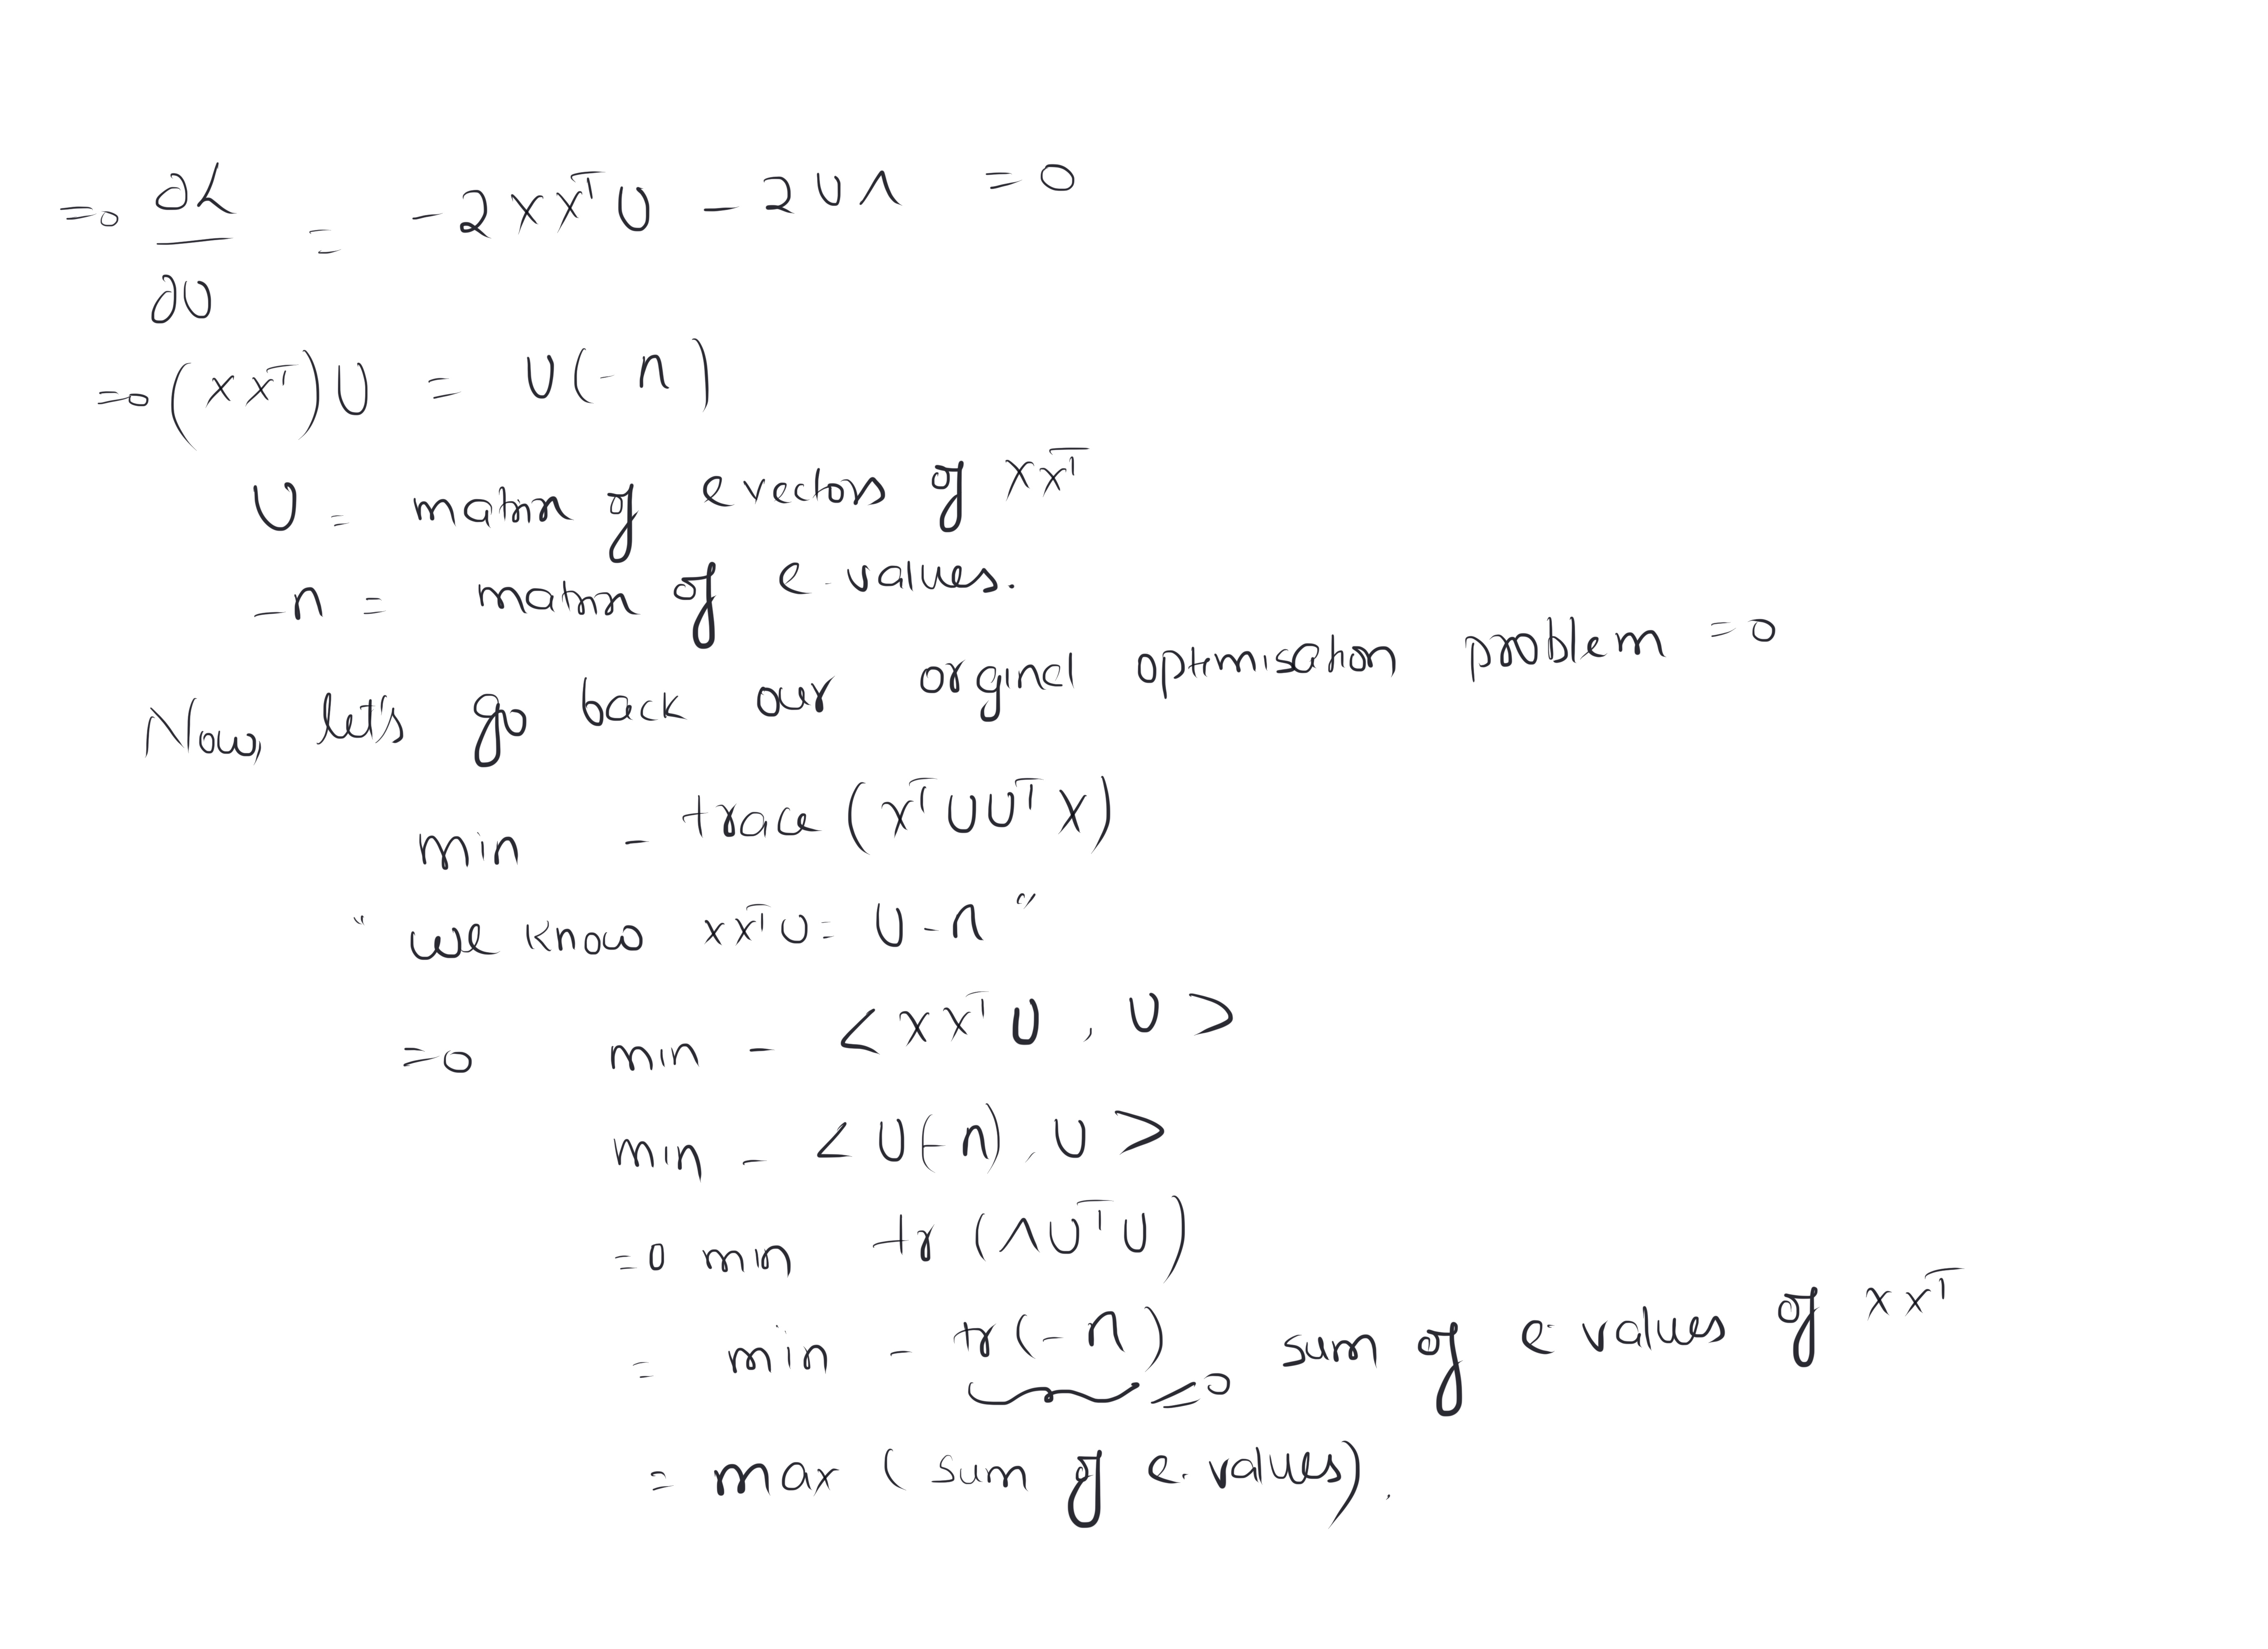 ⇒ ∂L/∂U = -2XXᵀU - 2UΛ = 0
⇒ (XXᵀ)U = U(-Λ)
U = matrix of evectors of XXᵀ
-Λ = matrix of e-values.
Now, let's go back our orginal optimisation problem ⇒
min - trace (XᵀUUᵀX)
"we know XXᵀU = U-Λ"
⇒ min - <XXᵀU, U>
min - <U(-Λ), U>
⇒ min tr (ΛUᵀU)
= min - tr(-Λ) ≤0 sum of e-values of XXᵀ
= max (sum of e-values).